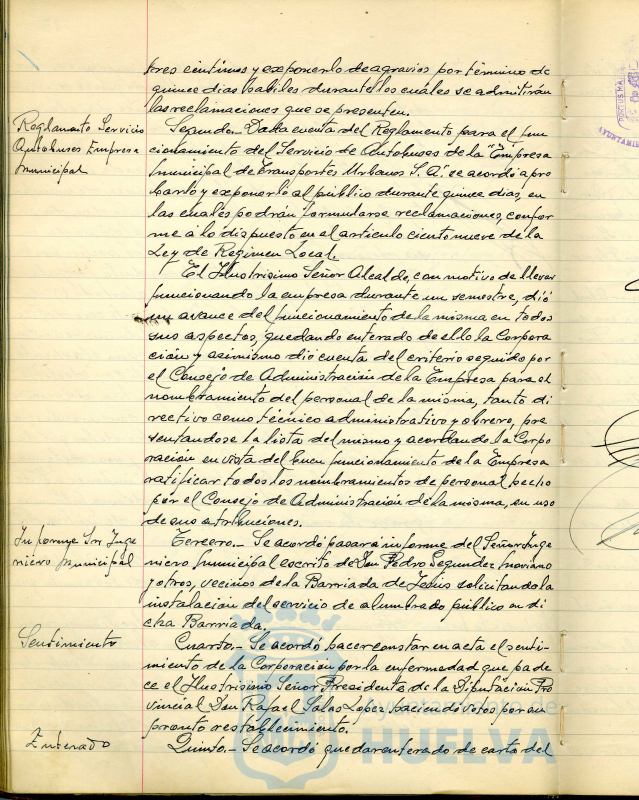 tres centimos y exponerlo de agravios por término de
quince dias habiles durante los cuales se admitirán
las reclamaciones que se presenten.
Reglamento Servicio
Autobuses Empresa
Municipal
Segundo.- Dada cuenta del Reglamento para el fun
cionamiento del Servicio de Autobuses de la "Empresa
Municipal de Transportes Urbanos S.A." se acordó apro
barlo y exponerlo al público durante quince dias, en
las cuales podrán formularse reclamaciones, confor
me a lo dispuesto en al articulo ciento nueve de la
Ley de Regimen Local.
El Ilustrisimo Señor Alcalde, con motivo de llevar
funcionando la empresa durante un semestre, dió
un avance del funcionamiento de la misma en todos
sus aspectos, quedando enterado de ello la Corpora
ción y asimismo dió cuenta del criterio seguido por
el Consejo de Administración de la Empresa para el
nombramiento del personal de la misma, tanto di
rectivo como técnico administrativo y obrero, pre
sentandose la lista del mismo y acordando la Corpo
ración en vista del buen funcionamiento de la Empresa
ratificar todos los nombramientos de personal hecho
por el Consejo de Administración de la misma, en uso
de sus atribuciones.
Informe Sr. Inge
niero Municipal
Tercero.- Se acordó pasar a informe del Señor Inge
niero Municipal escrito de Don Pedro Segundez
y otros, vecinos de la Barriada de Jesús solicitando la
instalación del servicio de alumbrado público en di
cha Barriada.
Sentimiento
Cuarto.- Se acordó hacer constar en acta el senti-
miento de la Corporación por la enfermedad que pade
ce el Ilustrisimo Señor Presidente de la Diputación Pro
vincial Don Rafael Salas Lopez haciendo votos por su
pronto restablecimiento.
Enterado
Quinto.- Se acordó quedar enterado de carta del
HUELVA